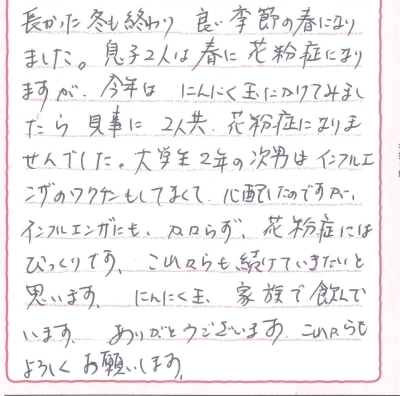 長かった冬も終わり 良い季節の春になり
ました。息子2人は春に花粉症になり
ますが、今年は にんにく玉にかけてみまし
たら 見事に 2人共、花粉症になりま
せんでした。大学生2年の次男はインフルエ
ンザのワクチンもしてなくて、心配したのですが、
インフルエンザにも、かからず、花粉症には
びっくりです、これからも続けていきたいと
思います、 にんにく玉、家族で飲んで
います、 ありがとうございます、これからも
よろしくお願いします、